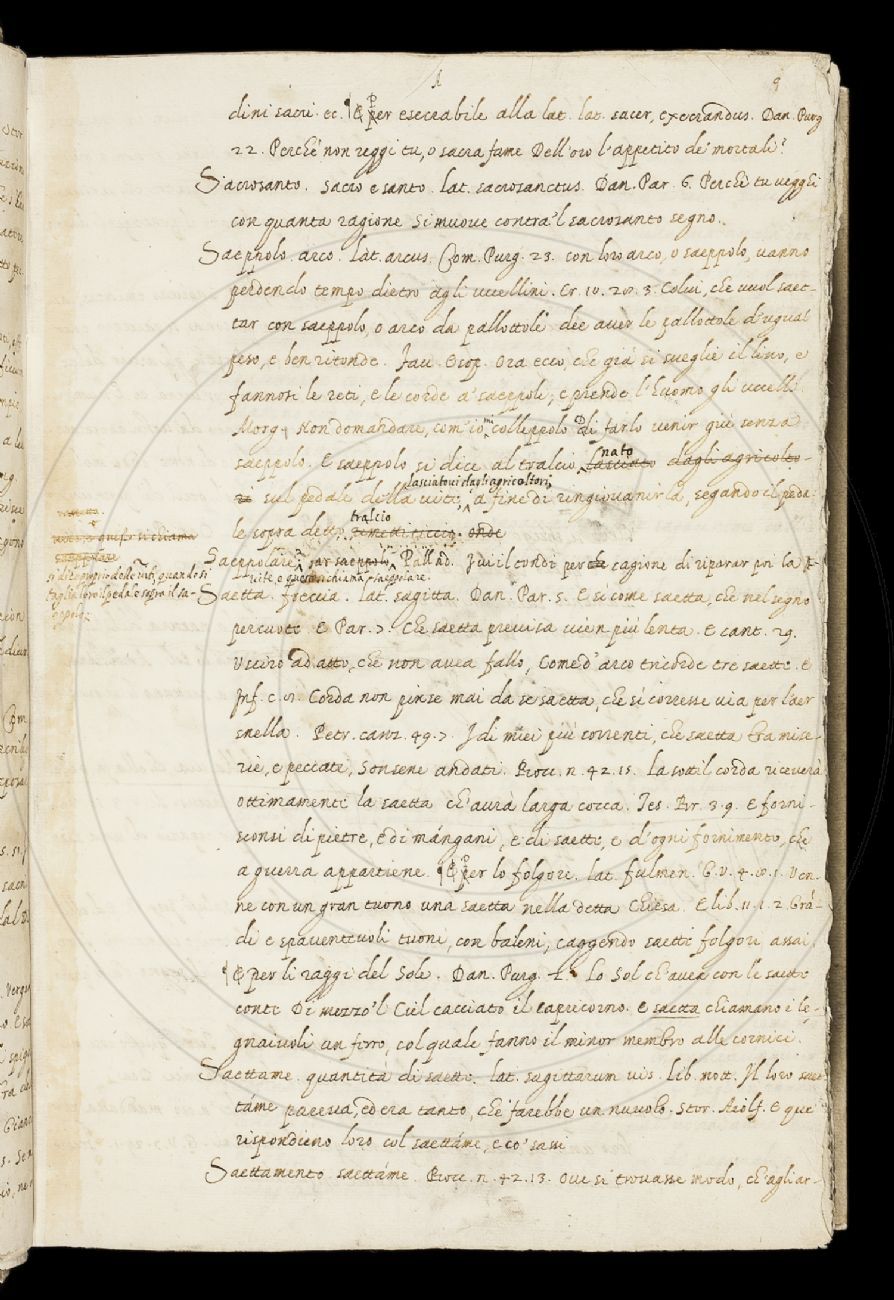 A
9
dini sacri. ec. ¶ E per esecrabile alla lat. lat. sacer, execrandus. Dan. Purg
22. Perche' non reggi tu, o sacra fame Dell'oro l'appetito de' mortali?
Sacrosanto. Sacro e santo. Lat. sacrosanctus. Dan. Par. 6. Perche tu veggi
con quanta ragione Si muove contra'l sacrosanto segno.
Saeppolo. arco. Lat. arcus. Com. Purg. 23. con loro arco, o saeppolo, vanno
perdendo tempo dietro agli uccellini. Cr. 10. 28. 3. Colui, che vuol saet-
tar con saeppolo, o arco da pallottole dee aver le pallottole d'ugual
peso, e ben ritonde. Fav. Esop. Ora ecco, che già si sveglie il lino, e
fannosi le reti, e le corde a' saeppoli; e prende l'huomo gli uccelli.
Morg. Non domandare, com'io mi colleppolo Di farlo venir qui senza
saeppolo. E saeppolo si dice al tralcio, nato lasciato dagli agricolto-
ri sul pedale della vite, lasciatovi dagli agricoltori, a fine di ringiovanirla, segando il peda-
le sopra detto tralcio. rimettiticcio. onde
Saeppolare. far saeppolo. Pallad. I dì il condi per cagione di riparar poi la
vite, e questo si chiama saeppolare.
questo si chiama
saeppolare
si dice proprio delle viti, quando si
taglia loro il pedale sopra il sa-
eppolo.
Saetta. freccia. lat. sagitta. Dan. Par. 5. E si come saetta, che nel segno
percuote. E Par. 7. Che saetta previsa vien più lenta. E cant. 29.
Usciro ad atto, che non avea fallo, Come d'arco tricorde tre saette. E
Inf. c. 8. Corda non pinse mai da se saetta, che si corresse via per l'aer
snella. Petr. canz. 49. 7. I dì miei più correnti, che saetta Fra mise-
rie, e peccati, Sonsene andati. Bocc. n. 42. 15. La sottil corda riceverà
ottimamente la saetta ch'avrà larga cocca. Tes. Br. 3. 9. E forni-
sconsi di pietre, e di mángani, e di saette, e d'ogni fornimento, che
a guerra appartiene. ¶ E per lo folgore. lat. fulmen. G. V. 4. 8. 1. Ven-
ne con un gran tuono una saetta nella detta Chiesa. E lib. 11. 1. 2. Grá-
di e spaventevoli tuoni, con baleni, caggendo saette folgori assai.
¶ E per li raggi del Sole. Dan. Purg. 2. Lo Sol ch'avea con le saette
conte Di mezzo'l Ciel cacciato il Capricorno. E saetta chiamano i le-
gnaiuoli un ferro, col quale fanno il minor membro alle cornici.
Saettame. quantità di saette. lat. sagittarum vis. Lib. mott. Il loro saet-
táme pareva, ed era tanto, che farebbe un nuvolo. Stor. Aiolf. E quei
rispondieno loro col saettáme, e co' sassi
Saettamento. saettáme. Bocc. n. 42. 13. Ove si trovasse modo, ch'agli ar-